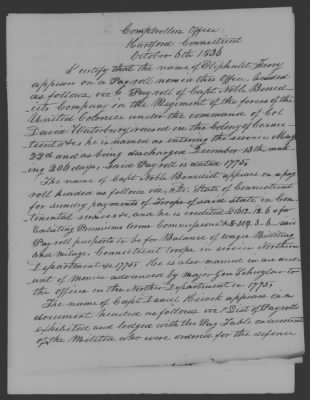 Comptrollers Office
Hartford Connecticut
October 6th 1836
I certify that the name of Eliphalet
appears on a Payroll now in this Office, headed
as follows, viz Payroll of Capt Noble Bened
icts Company in the Regiment of the forces of the
United Colonies under the command of Col
David Waterbury raised in the Colony of Connec
ticut & he is named as entering the service May
22d and as being discharged December 13th mak
ing 206 days. Said Payroll is dated 1775.
The name of Capt Noble Benedict appears on a pay
roll headed as follows viz, State of Connecticut
for sundry payments of Troops of said state in Con
tinental service &c, and he is credited for
Enlisting Premiums said
Payroll purports to be for Balance of wages Billeting
and milage Connecticut troops in service Northern
Department 1775. He is also named in an acco
unt of monies advanced by major Gen Schuyler to
the officers in the Northern Department in 1775.
The name of Capt Daniel Hecock appears on a
document headed as follows viz List of Payrolls
exhibited and lodged with the Pay Table on account
of the Militia who were ordered for the defence